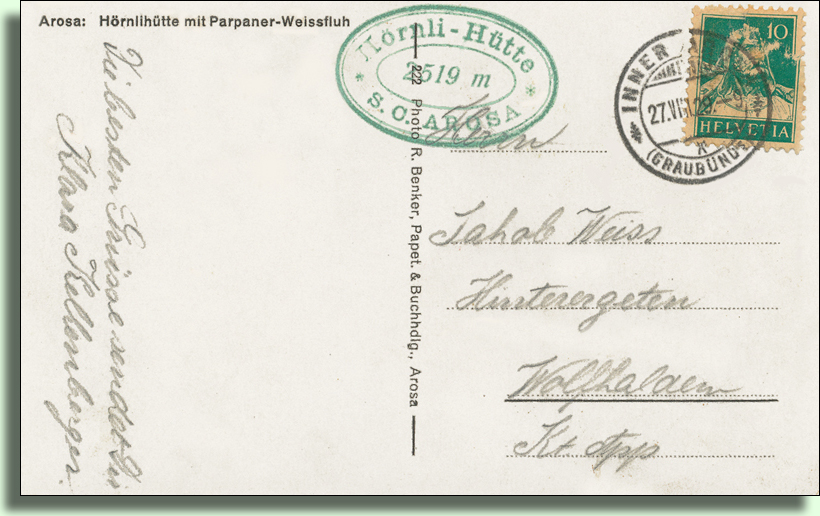 Arosa: Hörnlihütte mit Parpaner-Weissfluh
Die besten Grüsse sendet Dir
Klara Kellenberger.
222 Photo R. Benker, Papet. & Buchhdlg., Arosa
Hörnli-Hütte
2519 m
S. C. AROSA
INNER
27.VII.29
(GRAUBÜND
10
HELVETIA
Herrn
Jakob Weiss
Hinterergeten
Wolfhalden
Kt. App